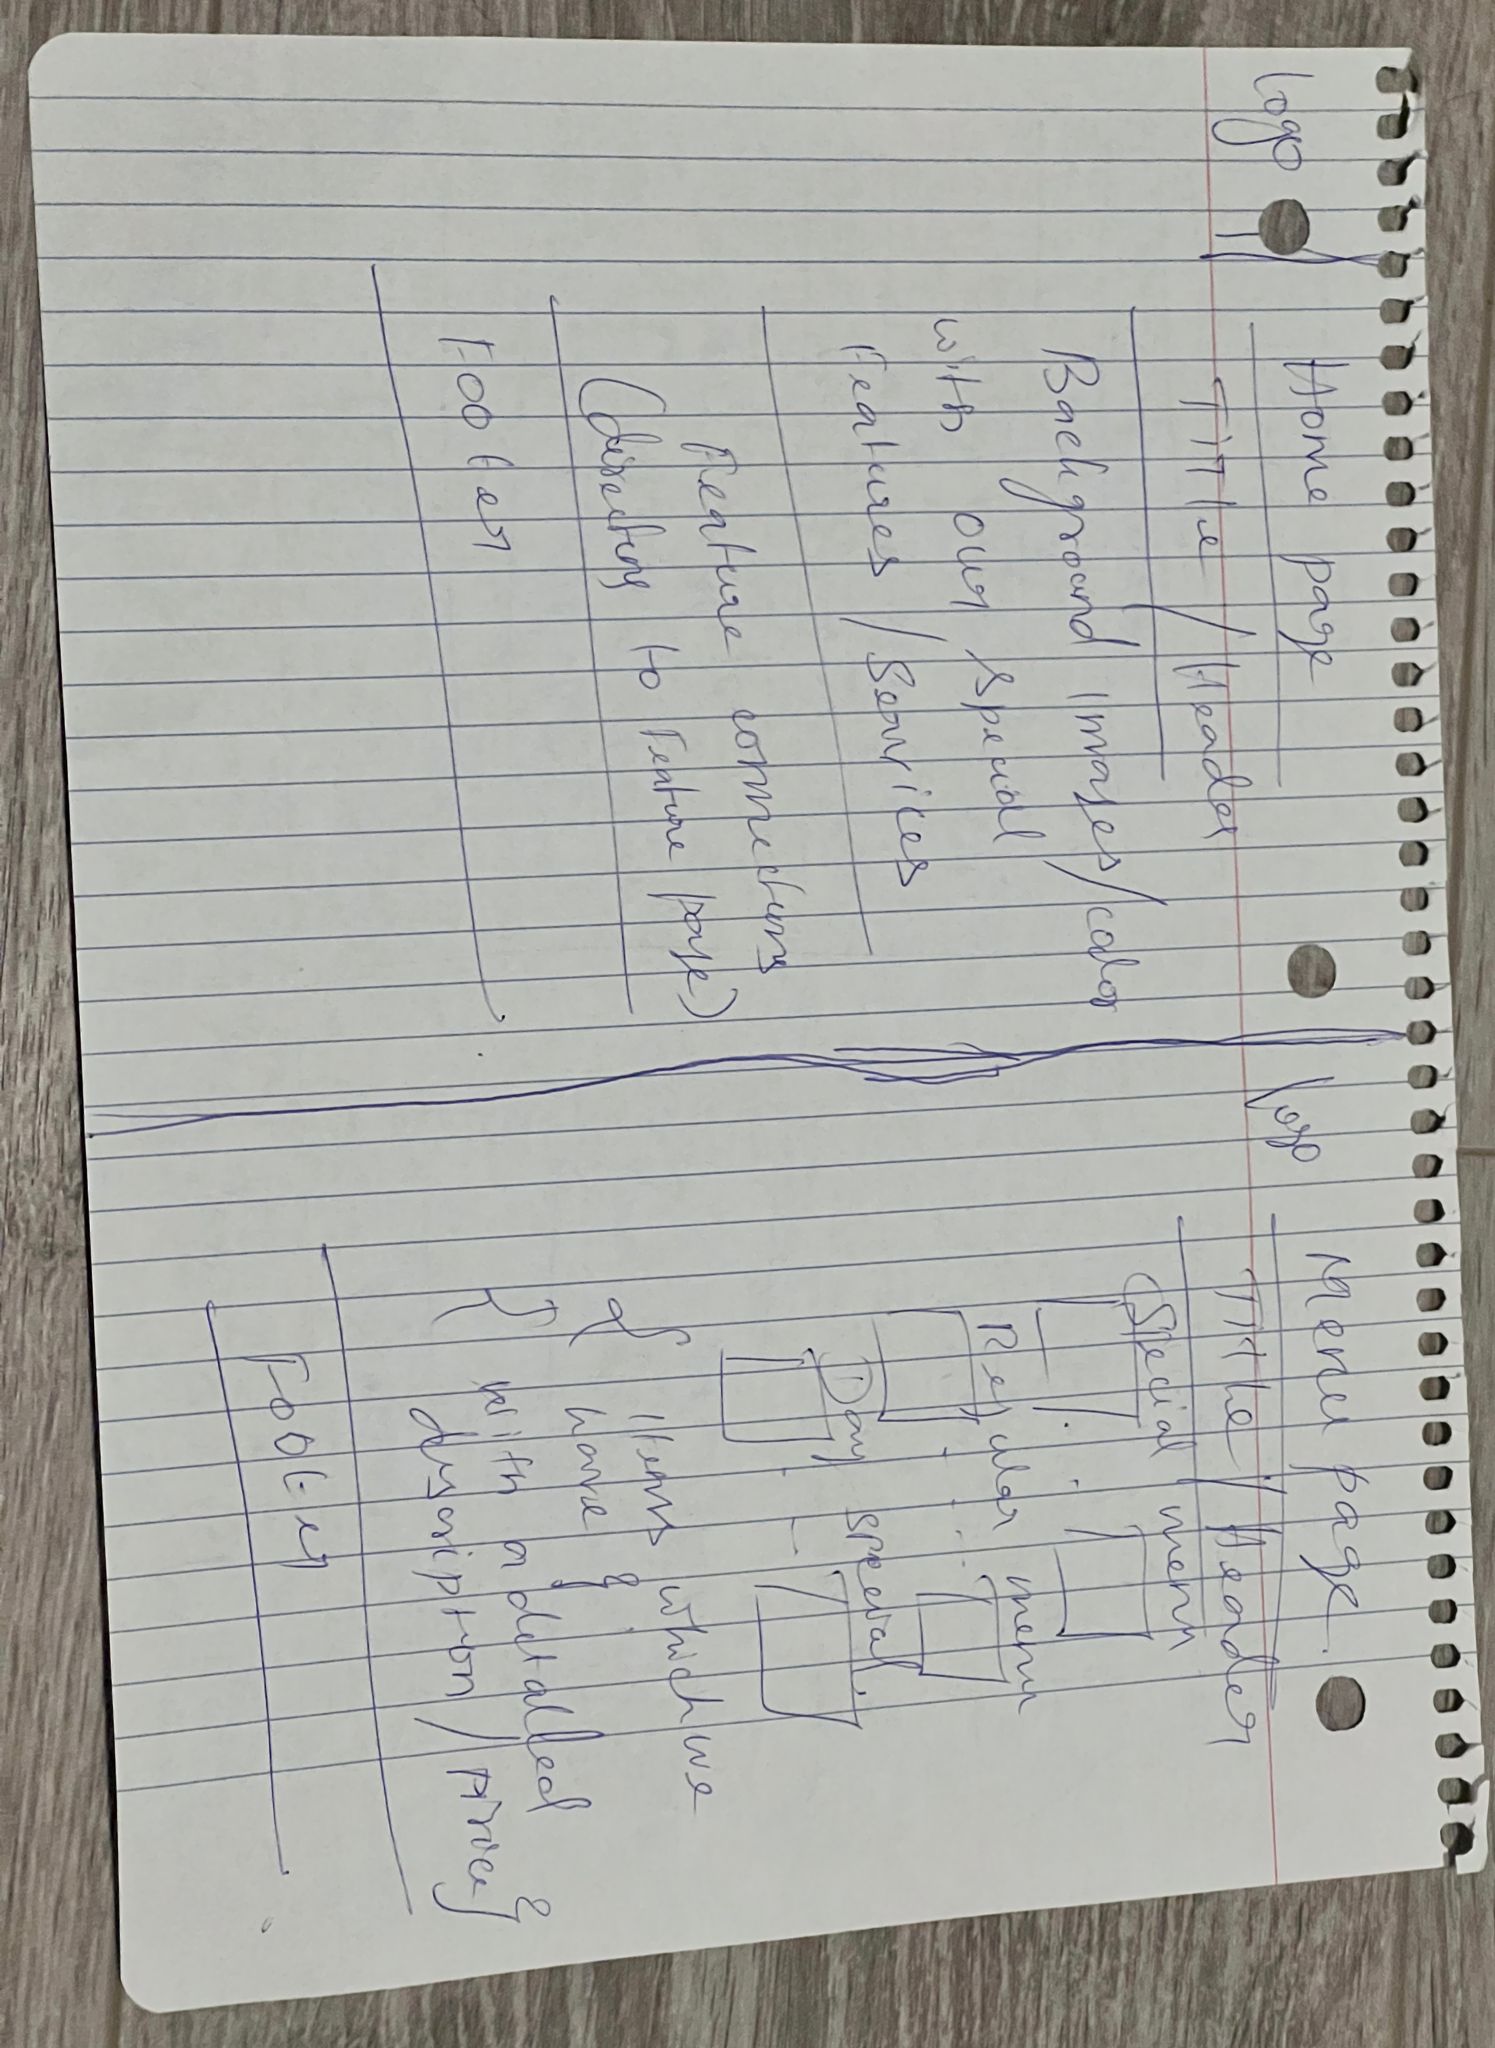 Logo
Home page
Title / Header
Background Images/color
with our special
Features / Services
Feature connections
(directing to Feature page)
Footer
Logo
Menu page
Title / Header
Special menu
Regular menu
Day special
Items which we
have &
with a detailed
desription / Price}
Footer